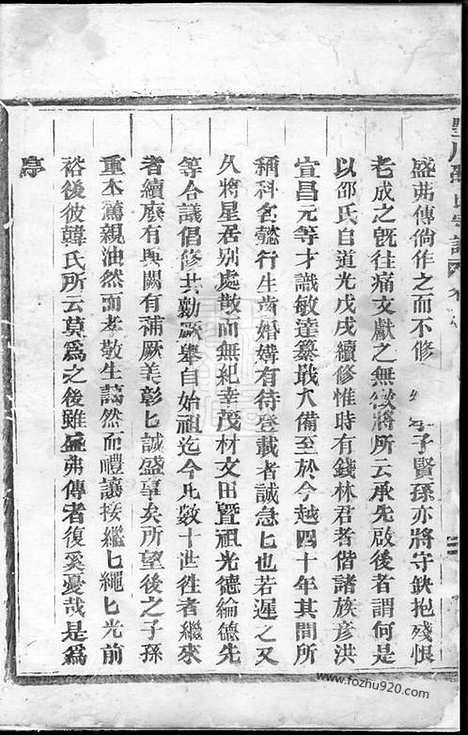 盛弗傳倘作之而不修 子賢孫亦將守鈌抱殘恨
老成之旣往痛文獻之無徵將所云承先啟後者謂何是
以邵氏自道光戊戌續修惟時有錢林君者偕諸族彥洪
宣昌元等才識敏達纂戢大備至於今越四十年其間所
稱科名懿行生歿婚媾有待登載者誠急匕也若遲之又
久將星居别處散而無紀幸茂材文田暨祖光德綸德先
等合議倡修共勷厥舉自始祖迄今凢數十世徃者繼來
者續廢有興闕有補厥美彰匕誠盛事矣所望後之子孫
重本篤親油然而孝敬生藹然而禮讓接繼匕繩匕光前
裕後彼韓氏所云莫爲之後雖盛弗傳者復奚憂哉是爲
序
www.fozhu920.com